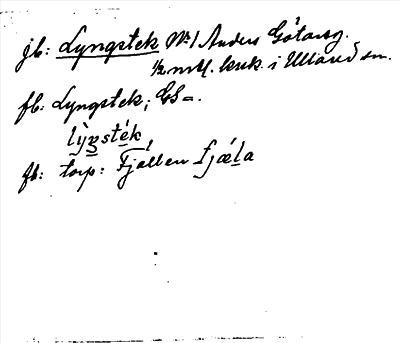 jb: Lyngstek No 1 Anders Götarsg.
1/2 mtl. kruk. i Ullared sn.
fb: Lyngstek; GS=.
lyŋsték
fb: torp: Fjällen fjæla